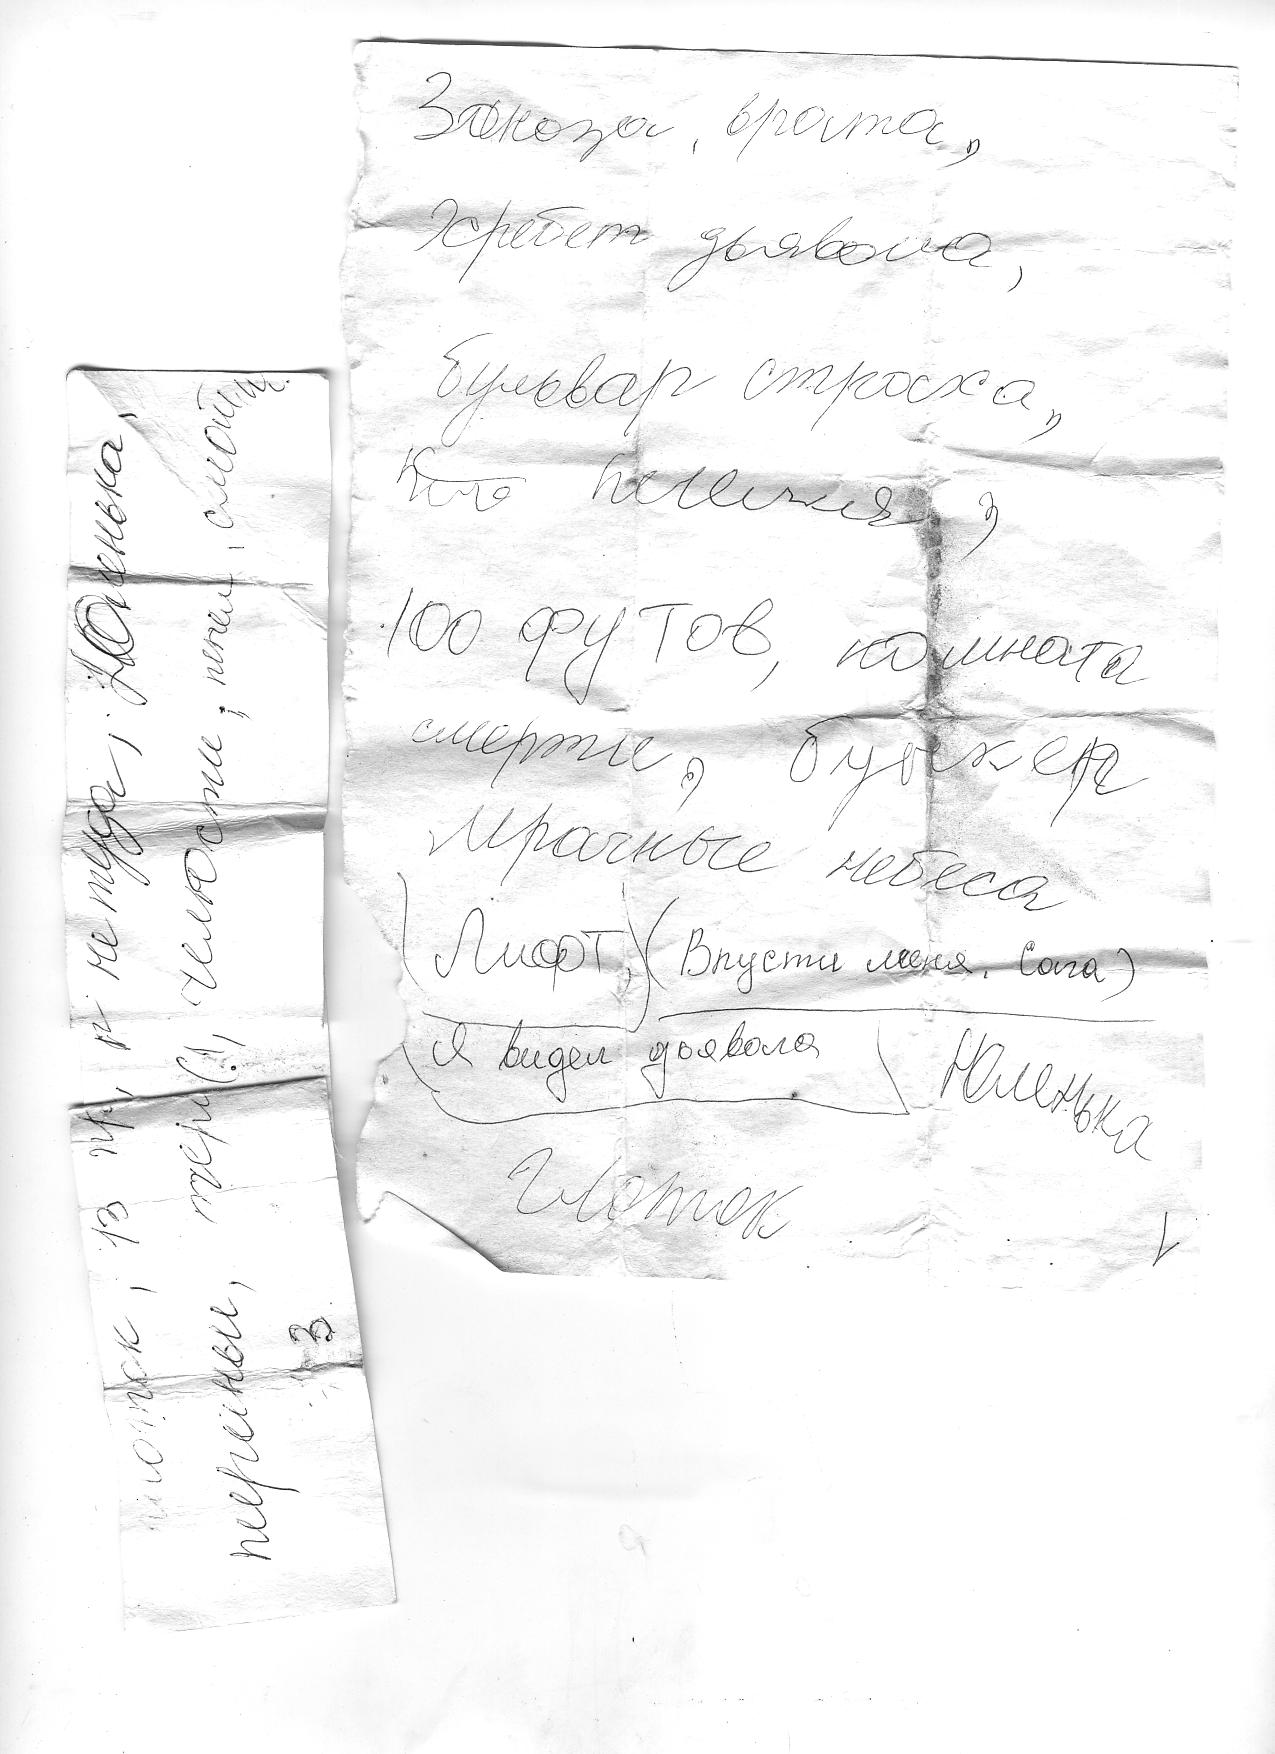 Заноза, врата,
Хребет дьявола,
бульвар страха,
100 футов, комната
смерти, бункер
Мрачные небеса
(Лифт, (Впусти меня. Сага)
Я видел дьявола Юленька
Глоток
1
глоток, 13 пр, и не туда, Юленька,
челюсти, пепел,
3